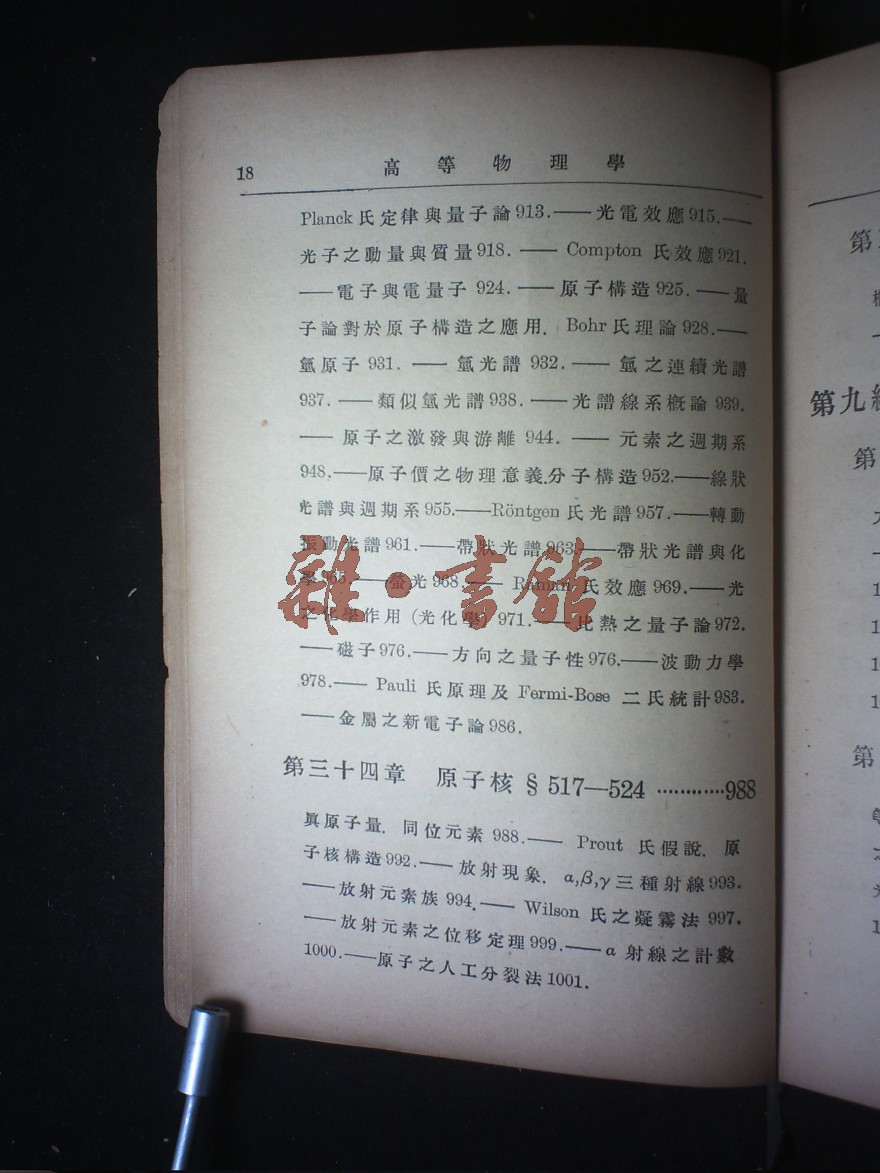 18 高等物理學
Planck 氏定律與量子論 913.——光電效應 915.——
光子之動量與質量 918.—— Compton 氏效應 921.
——電子與電量子 924.——原子構造 925.——量
子論對於原子構造之應用. Bohr 氏理論 928.——
氫原子 931.——氫光譜 932.——氫之連續光譜
937.——類似氫光譜 938.——光譜線系概論 939.
——原子之激發與游離 944.——元素之週期系
948.——原子價之物理意義.分子構造 952.——線狀
光譜與週期系 955.——Röntgen 氏光譜 957.——轉動
振動光譜 961.——帶狀光譜 963.——帶狀光譜與化
學 965.——螢光 968.—— Raman 氏效應 969.——光
之化學作用 (光化學) 971.——比熱之量子論 972.
——磁子 976.——方向之量子性 976.——波動力學
978.—— Pauli 氏原理及 Fermi-Bose 二氏統計 983.
——金屬之新電子論 986.
第三十四章 原子核 § 517—524 …………988
眞原子量. 同位元素 988.—— Prout 氏假說. 原
子核構造 992.——放射現象. α,β,γ 三種射線 993.
——放射元素族 994.—— Wilson 氏之凝霧法 997.
——放射元素之位移定理 999.——α 射線之計數
1000.——原子之人工分裂法 1001.
雜·書館
第
第九編
第
第